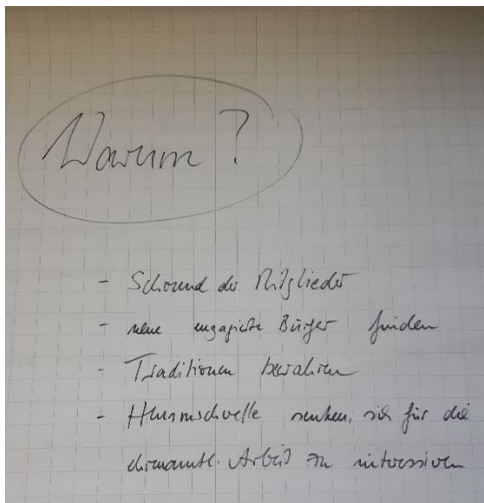 Warum?
- Schwund der Mitglieder
- neue engagierte Bürger finden
- Traditionen bewahren
- Hemmschwelle senken, sich für die
ehrenamtl. Arbeit zu interessieren